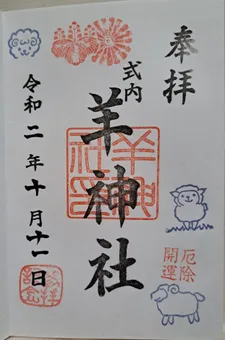 奉拝
式内
羊神社
令和二年十月十一日
厄除
開運